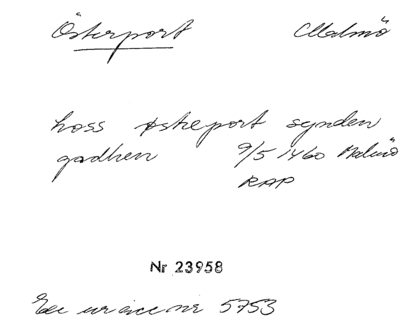 Österport Malmö
hoss østreport synden
gadhen 9/5 1460 Malmö
RAP
Nr 23958
ur acc nr 5753